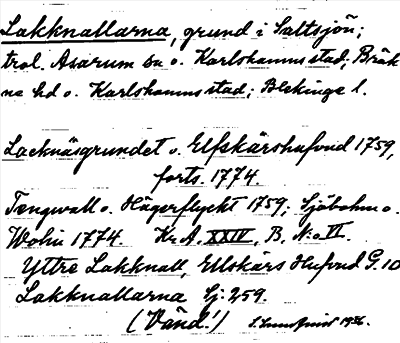 Lakknallarna, grund i Saltsjön;
trol. Asarum sn o. Karlshamns stad, Bräk
ne hd o. Karlshamns stad; Blekinge l.
Lacknäsgrundet v. Elfskärshufvud 1759,
forts. 1774.
Tengwall o. Hägerflyckt 1759; Sjöbohm o.
Wohn 1774. Kr. A. XXIV, B, N:o VI.
Yttre Lakknall, Ellskärs Hufvud G. 10
Lakknallarna Sj. 259.
(Vänd!) 1936.